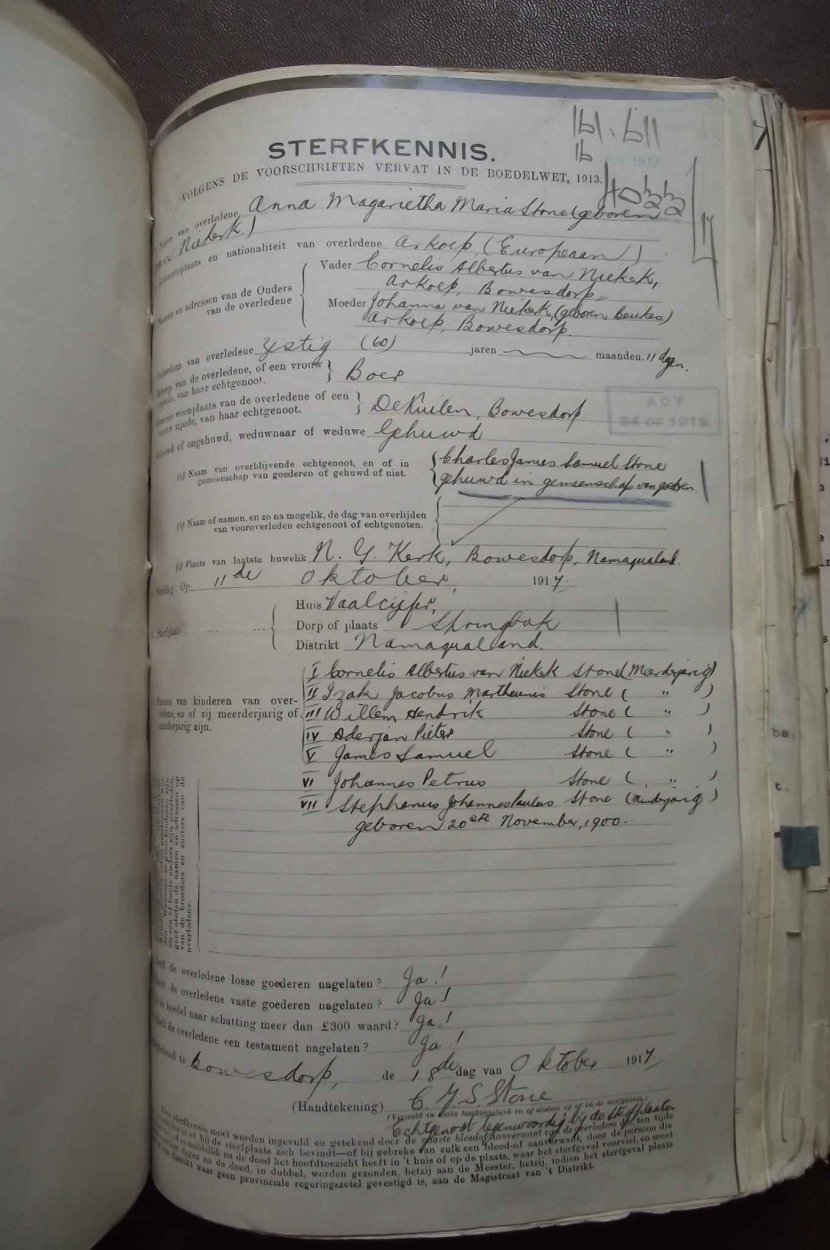 161.611
16
NOV 1917
4033
17
STERFKENNIS.
VOLGENS DE VOORSCHRIFTEN VERVAT IN DE BOEDELWET, 1913.
Naam van overledene Anna Magarietha Maria Stone (geboren
van Niekerk)
Geboorteplaats en nationaliteit van overledene Arkoep, (Europeaan)
Namen en adressen van de Ouders van de overledene
Vader Cornelis Albertus van Niekerk,
Arkoep, Bowesdorp.
Moeder Johanna van Niekerk, (geboren Beukes)
Arkoep, Bowesdorp.
Ouderdom van overledene Zestig (60) jaren maanden. 11 dagen.
Beroep van de overledene, of een vrouw
zijnde, van haar echtgenoot. Boer
Gewone woonplaats van de overledene of een
vrouw zijnde, van haar echtgenoot. De Kuilen, Bowesdorp
ACT
24 OF 1913.
Gehuwd of ongehuwd, weduwnaar of weduwe Gehuwd
(a) Naam van overblijvende echtgenoot, en of in
gemeenschap van goederen of gehuwd of niet.
Charles James Samuel Stone
gehuwd in gemeenschap van goederen.
(b) Naam of namen, en zo na mogelik, de dag van overlijden
van vooroverleden echtgenoot of echtgenoten.
(c) Plaats van laatste huwelik N. G. Kerk, Bowesdorp, Namaqualand.
Sterfdag: Op 11de Oktober, 1917.
Sterfplaats
Huis Vaalcijfer,
Dorp of plaats Springbok
Distrikt Namaqualand.
Namen van kinderen van over-
ledene, en of zij meerderjarig of
minderjarig zijn.
I Cornelis Albertus van Niekerk Stone (Meerderjarig)
II Izak Jacobus Martheunis Stone ( " )
III Willem Hendrik Stone ( " )
IV Aderjan Pieter Stone ( " )
V James Samuel Stone ( " )
VI Johannes Petrus Stone ( " )
VII Stephanus Johannes Paulus Stone (Minderjarig)
geboren 20ste November, 1900.
Heeft de overledene losse goederen nagelaten? Ja!
Heeft de overledene vaste goederen nagelaten? Ja!
Is de boedel naar schatting meer dan £300 waard? Ja!
Heeft de overledene een testament nagelaten? Ja!
Getekend te Bowesdorp, de 18de dag van Oktober 1917.
(Handtekening) C. J. S. Stone
Echtgenoot tegenwoordig bij de sterfplaats